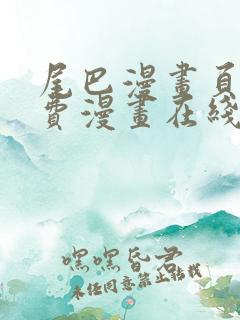 尾巴漫畫頁
費漫畫在綫
嘿嘿昏君
未任同意禁止轉載